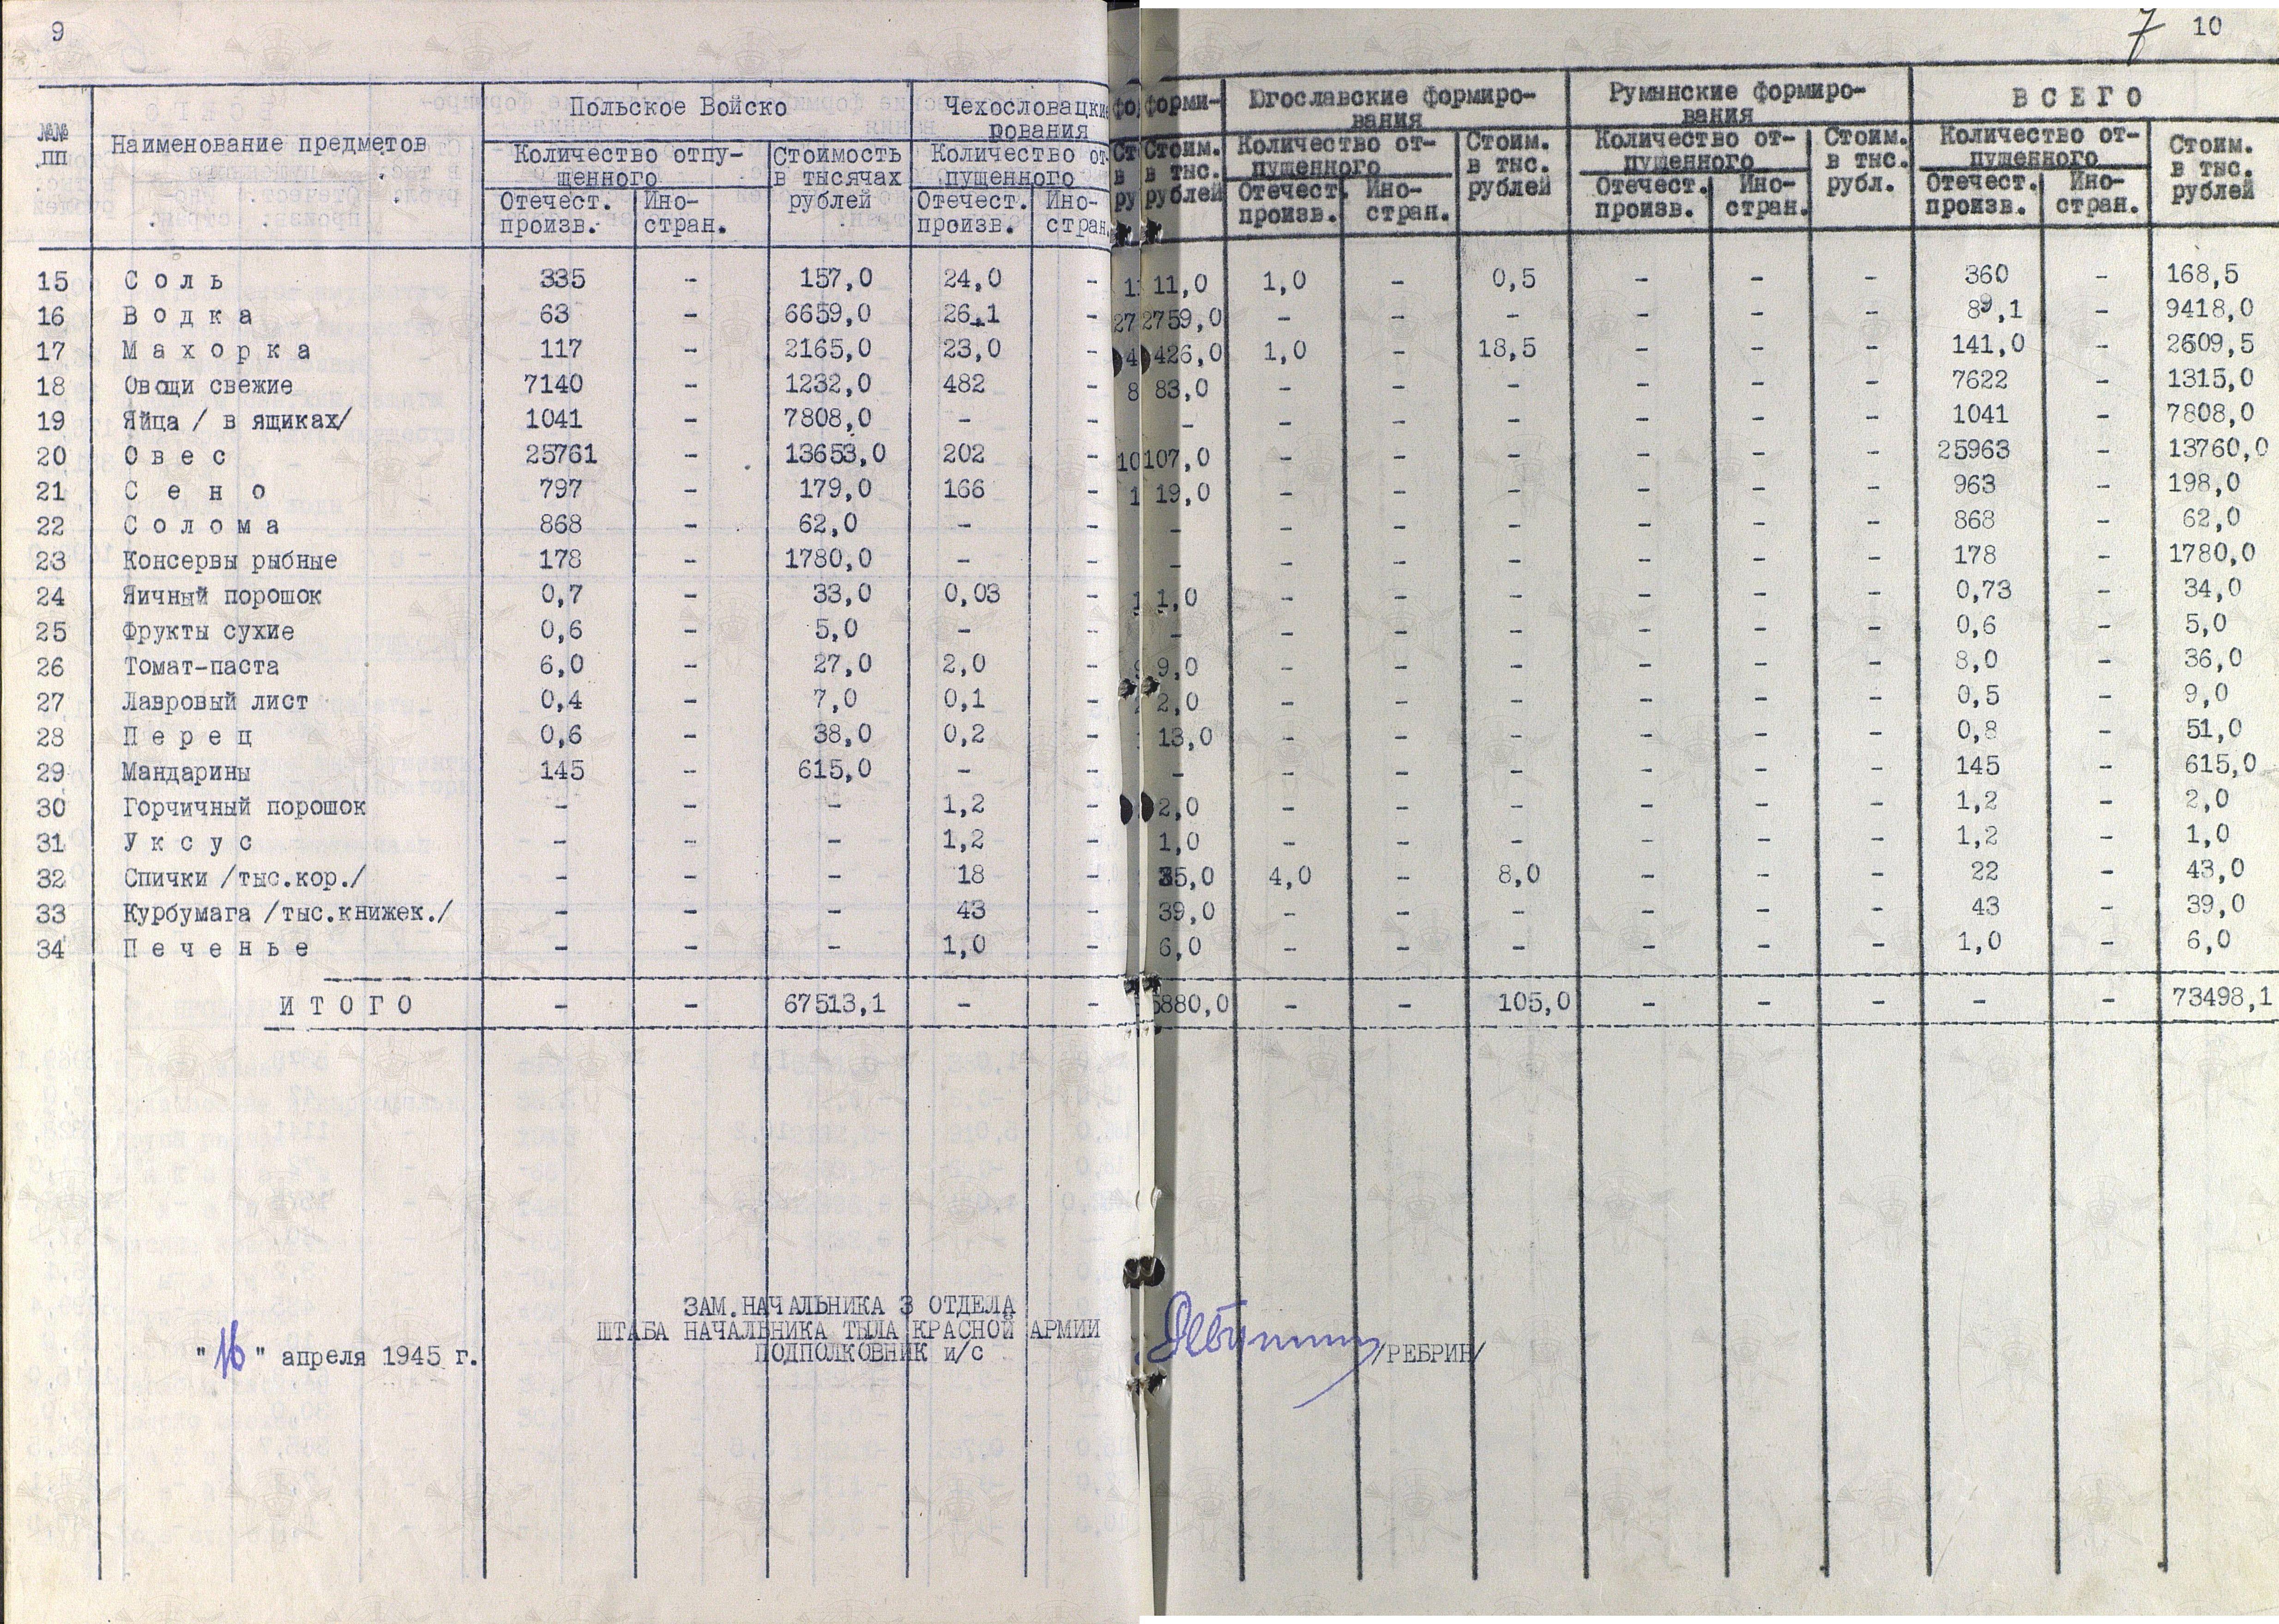 9
7 10
№№ ПП
Наименование предметов
Польское Войско
Чехословацкие формирования
Югославские формиро-
вания
Румынские формиро-
вания
ВСЕГО
Количество отпу-
щенного
Стоимость
в тысячах
рублей
Количество от-
пущенного
Стоим.
в тыс.
рублей
Количество от-
пущенного
Стоим.
в тыс.
рублей
Количество от-
пущенного
Стоим.
в тыс.
рубл.
Количество от-
пущенного
Стоим.
в тыс.
рублей
Отечест. произв. Ино-стран. Отечест. произв. Ино-стран. Отечест. произв. Ино-стран. Отечест. произв. Ино-стран. Отечест. произв. Ино-стран.
15 Соль 335 - 157,0 24,0 - 11,0 1,0 - 0,5 - - - 360 - 168,5
16 Водка 63 - 6659,0 26,1 - 2759,0 - - - - - - 89,1 - 9418,0
17 Махорка 117 - 2165,0 23,0 - 426,0 1,0 - 18,5 - - - 141,0 - 2609,5
18 Овощи свежие 7140 - 1232,0 482 - 83,0 - - - - - - 7622 - 1315,0
19 Яйца / в ящиках/ 1041 - 7808,0 - - - - - - - - - 1041 - 7808,0
20 Овес 25761 - 13653,0 202 - 107,0 - - - - - - 25963 - 13760,0
21 Сено 797 - 179,0 166 - 19,0 - - - - - - 963 - 198,0
22 Солома 868 - 62,0 - - - - - - - - - 868 - 62,0
23 Консервы рыбные 178 - 1780,0 - - - - - - - - - 178 - 1780,0
24 Яичный порошок 0,7 - 33,0 0,03 - 1,0 - - - - - - 0,73 - 34,0
25 Фрукты сухие 0,6 - 5,0 - - - - - - - - - 0,6 - 5,0
26 Томат-паста 6,0 - 27,0 2,0 - 9,0 - - - - - - 8,0 - 36,0
27 Лавровый лист 0,4 - 7,0 0,1 - 2,0 - - - - - - 0,5 - 9,0
28 Перец 0,6 - 38,0 0,2 - 13,0 - - - - - - 0,8 - 51,0
29 Мандарины 145 - 615,0 - - - - - - - - - 145 - 615,0
30 Горчичный порошок - - - 1,2 - 2,0 - - - - - - 1,2 - 2,0
31 Уксус - - - 1,2 - 1,0 - - - - - - 1,2 - 1,0
32 Спички /тыс.кор./ - - - 18 - 35,0 4,0 - 8,0 - - - 22 - 43,0
33 Курбумага /тыс.книжек./ - - - 43 - 39,0 - - - - - - 43 - 39,0
34 Печенье - - - 1,0 - 6,0 - - - - - - 1,0 - 6,0
ИТОГО - - 67513,1 - - 5880,0 - - 105,0 - - - - - 73498,1
ЗАМ.НАЧАЛЬНИКА 3 ОТДЕЛА
ШТАБА НАЧАЛЬНИКА ТЫЛА КРАСНОЙ АРМИИ
ПОДПОЛКОВНИК и/с /РЕБРИН/
"16" апреля 1945 г.